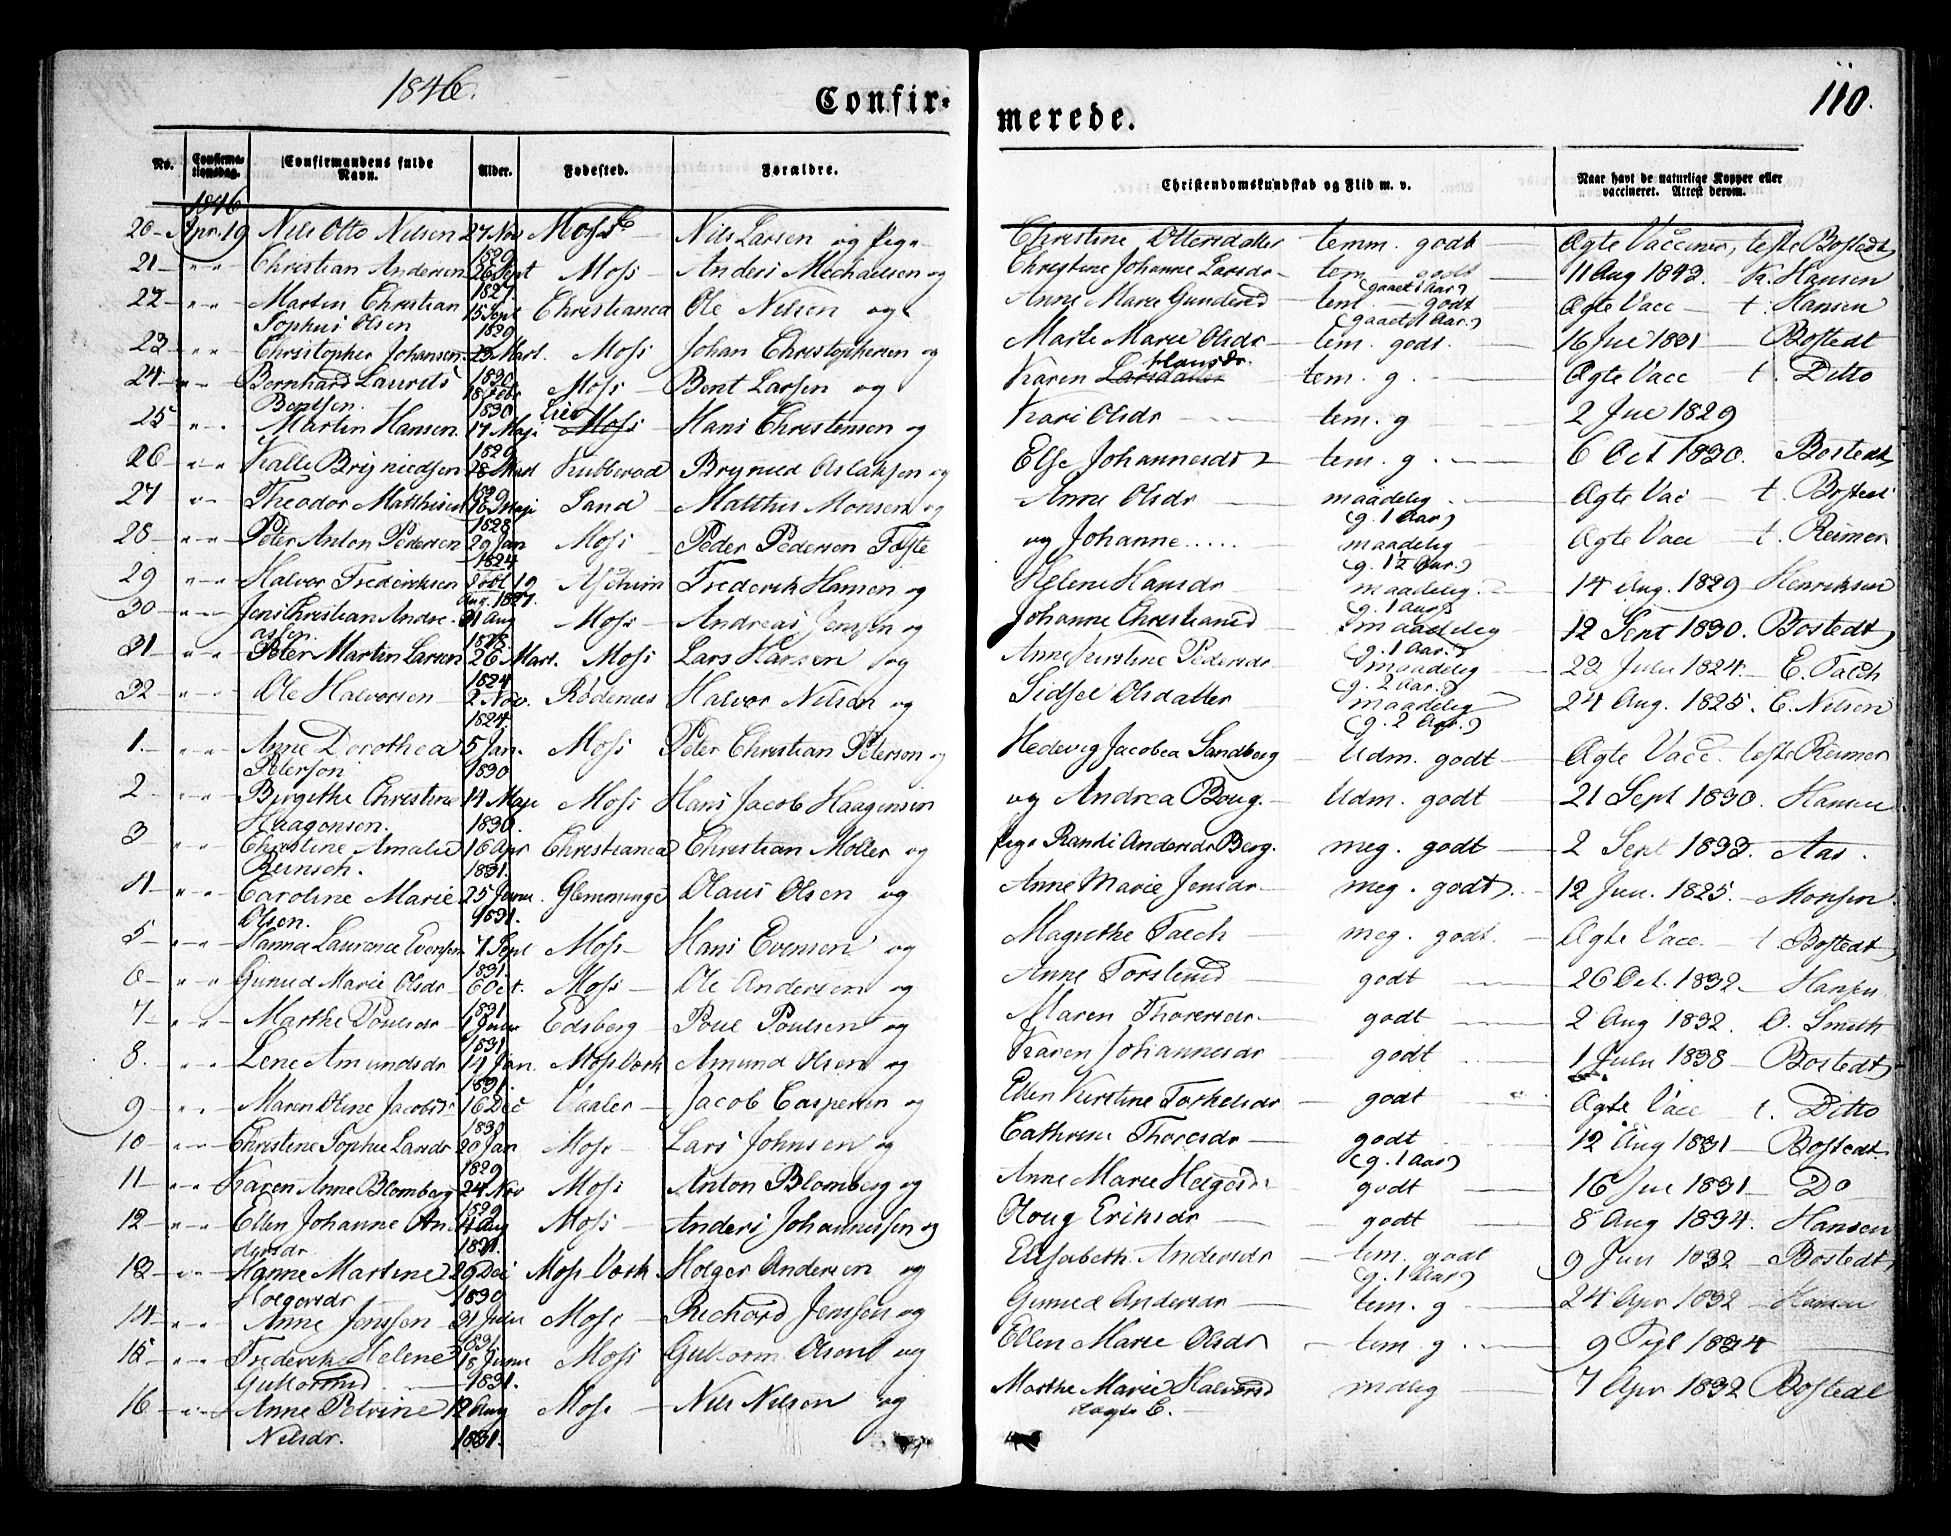 1846.
Confir-
merede.
110.
No.
Confirma-
tionsdag.
Confirmandens fulde
Navn.
Alder.
Fødested.
Forældre.
Christendomskundskab og Flid m. v.
Naar havt de naturlige Kopper eller
vaccineret. Attest derom.
1846
20 - Apr. 19 Nils Otto Nilsen 27 Nov 1829 Moss Nils Larsen og Pige Christine Ottersdatter temm. godt Ægte Vacciner, teste Bostedt
21 - " " Christian Andersen 26 Sept 1827 Moss - Anders Michaelsen og Christine Johanne Larsdr - tem godt (gaaet 1 Aar) 11 Aug 1843. Hansen
22 - " " Martin Christian Sophus Olsen 15 Sept 1829 Christiania Ole Nilsen og Anne Marie Gundersd tem. - godt (gaaet 1 Aar.) Ægte Vacc - t. Hansen
23 - " " Christopher Johansen 23 Mart. 1830 Moss Johan Christophersen og Marte Marie Olsdr - tem. godt. 16 Jul 1831 - Bostedt
24 - " " Bernhard Laurits Bentsen. 18 Febr 1830 Moss - Bent Larsen og Karen Larsdatter Hansdr. tem. g. - Ægte Vacc t. Ditto
25 - " " Martin Hansen. 17 Maji 1829 Lier Moss Hans Christensen og Kari Olsdr - tem. g 2 Jul 1829
26 " " Kalle Brynildsen 28 Mart Kubberød Brynild Aslaksen og Else Johannesdr - tem. g. - 6 Oct 1830. Bostedt
27 " " Theodor Matthisen Maji 1828 Sand Matthis Monsen og Anne Olsdr maadelig. (g. 1 Aar) Ægte Vac - t. Bostedt
28 - " " Peter Anton Pedersen 29 Jan 1824 Moss Peder Pedersen Foste og Johanne ..... maadelig (g. 1½ Aar.) Ægte Vacc - t. Reimer
29 " " Halvor Frederiksen Aug. 1827. Frederik Hansen og Helene Hansdr maadelig. (g. 1 Aar) 14 Aug. 1829 Henriksen
30 - " " Jens Christian Andreassen. 31 Aug 1828 Moss - Andreas Jensen og Johanne Christiansd - maadelig (g. 1 Aar.) 12 Sept 1830. Bostedt
31 - " " Peter Martin Larsen 26 Mart. 1824 Moss Lars Hansen og Anne Kirstine Pedersdr maadelig (g. 2 Aar.) 23 Julii 1824. - E. Tach
32 - " " Ole Halvorsen 2 Nov. 1824. Rødenæs Halvor Nilsen og Sidsel Olsdatter maadelig (g. 2 Aar.) 24 Aug. 1825. E. Nilsen
1. - " " Anne Dorothea Peterson 5 Jan. 1830 Moss Peter Christian Peterson og Hedevig Jacobea Sandberg Udm. godt - Ægte Vacc. teste Reimer
2 " " Birgithe Christine Haagensen. 14 Maji 1830. Moss Hans Jacob Haagensen og Andrea Boug. - Udm. godt - 21 Sept 1830. Hansen
3 - " " Christine Amalie Reinsch. 16 Apr 1831. Christiania Christian Møller og Pige Randi Andersdr Berg. meg. godt - 2 Sept 1833. Aas.
4 - " " Caroline Marie Olsen. 25 Junii 1831. Glemminge Olaus Olsen og Anne Marie Jensdr - meg. godt. - 12 Jun. 1825. - Monsen.
5 - " " Hanna Laurence Evensen 7 Sept 1831. Moss - Hans Evensen og Magrethe Tach - meg. godt. - Ægte Vacc. - t Bostedt
6 - " " Gunild Marie Olsdr 6 Oct. 1831 Moss - Ole Andersen og Anne Torslund godt - 26 Oct. 1832. - Hansen
7 - " " Marthe Poulsdr 1 Julii 1831 Edsberg - Poul Poulsen og Maren Thoresdr - godt - 2 Aug 1832. O. Smith
8. " " Lene Amundsdr 14 Jan. 1831. Moss Værk Amund Olsen og Karen Johannesdr godt 1 Julii 1838 - Bostedt
9 " " Maren Oline Jacobsdr 16 Dec 1830 Vaaler - Jacob Caspersen og Ellen Kirstine Torkelsdr - godt Ægte Vacc t. Ditto
10 - " " Christine Sophie Larsdr 20 Jan 1829 Moss - Lars Johnsen og Cathrine Thoresdr - godt (g. 1 Aar) 12 Aug 1831 - Bostedt
11 - " " Karen Anne Blomberg 24 Nov 1829 Moss - Anton Blomberg og Anne Marie Holgersdr godt - 16 Jul 1831 - Do
12 - " " Ellen Johanne Andersdr 4 Aug 1831. Moss - Anders Johannessen og Houg Eriksdr - godt - 8 Aug 1834. Hansen
13 - " " Hanne Martine Holgersdr 29 Dec 1830 Moss Værk Holger Andersen og Elisabeth Andersdr - tem. godt (g. 1 Aar) 9 Jun 1832 - Bostedt
14 - " " Anne Jensen - 31 Julii 1831 Moss - Richard Jensen og Gunild Andersdr - tem. g - 24 Apr 1832 - Hansen
15 - " " Frederik Helene Guttormsd 18 Junii 1831. Moss Guttorm Olsen og Ellen Marie Olsdr - tem. g. - 9 Sept 1834
16 - " " Anne Petrine Nilsdr. 12 Aug 1831. Moss - Nils Nilsen og Marthe Marie Halvorsd Ægte E. - mdlig - 7 Apr 1832 Bostedt